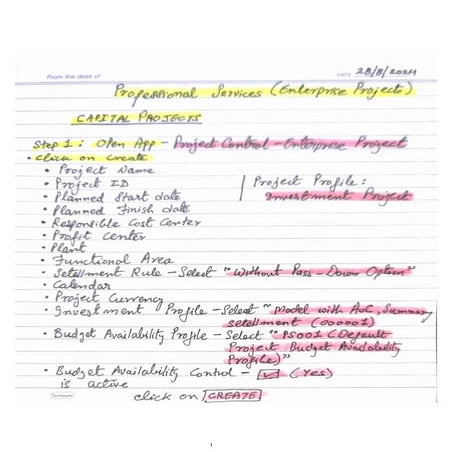 From the desk of
DATE 28/8/2024
Professional Services (Enterprise Projects)
CAPITAL PROJECTS
Step 1 : Open App - Project Control - Enterprise Project
• click on create
• Project Name
• Project ID
• Planned Start date
• Planned Finish date
Project Profile :
Investment Project
• Responsible Cost Center
• Profit Center
• Plant
• Functional Area
• Setellment Rule - Select "Without Pass-Down Option"
• Calendar
• Project Currency
• Investment Profile - Select "Model with AuC, Summary
setellment (000001)
• Budget Availability Profile - Select "PS001 (Default
Project Budget Availability
Profile)"
• Budget Availability Control - ☑ (Yes)
is active
click on CREATE
1